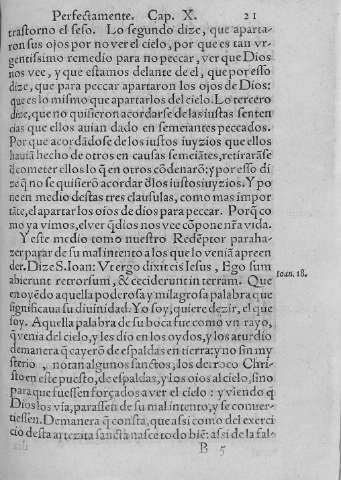 Perfectamente. Cap. X. 21
trastorno el seso. Lo segundo dize, que aparta-
ron sus ojos por no ver el cielo, por que es tan vr-
gentissimo remedio para no peccar, ver que Dios
nos vee, y que estamos delante de el, que por esso
dize, que para peccar apartaron los ojos de Dios:
que es lo mismo que apartarlos del cielo. Lo tercero
dize, que no quisieron acordarse de las iustas senten
cias que ellos auian dado en semejantes peccados.
Por que acordãdose de los iustos iuyzios que ellos
hauiã hecho de otros en causas semeiãtes, retirarãse
d̃ cometer ellos lo q̃ en otros cõdenarõ: y por esso di
ze q̃ no se quisierõ acordar d̃ los iustos iuyzios. Y po
ne en medio destas tres clausulas, como mas impor
tãte, el apartar los oios de dios para peccar. Porq̃ co
mo ya vimos, el ver q̃ dios nos vee cõponer nr̃a vida.
Y este medio tomo nuestro Redẽptor para ha-
zer parar de su mal intento a los que lo veniã apreen
der. Dize S. Ioan: Vt ergo dixit eis Iesus, Ego sum
abierunt retrorsum, & ceciderunt in terram. Que
en oyẽdo aquella poderosa y milagrosa palabra que
significaua su diuinidad: Yo soy, quiere dezir, el que
soy. Aquella palabra de su boca fue como vn rayo,
q̃ venia del cielo, y les dio en los oydos, y los aturdio
de manera q̃ cayerõ de espaldas en tierra: y no sin my
sterio, notan algunos sanctos, los derroco Chri-
sto en este puesto, de espaldas, y los oios al cielo, sino
para que fuessen forçados a ver el cielo: y viendo q̃
Dios los via, parassen de su mal intento, y se conuer-
tiessen. De manera q̃ consta, que assi como del exerci
cio desta artezita sancta nasce todo biẽ: assi de la fal-
B 5
Ioan. 18.